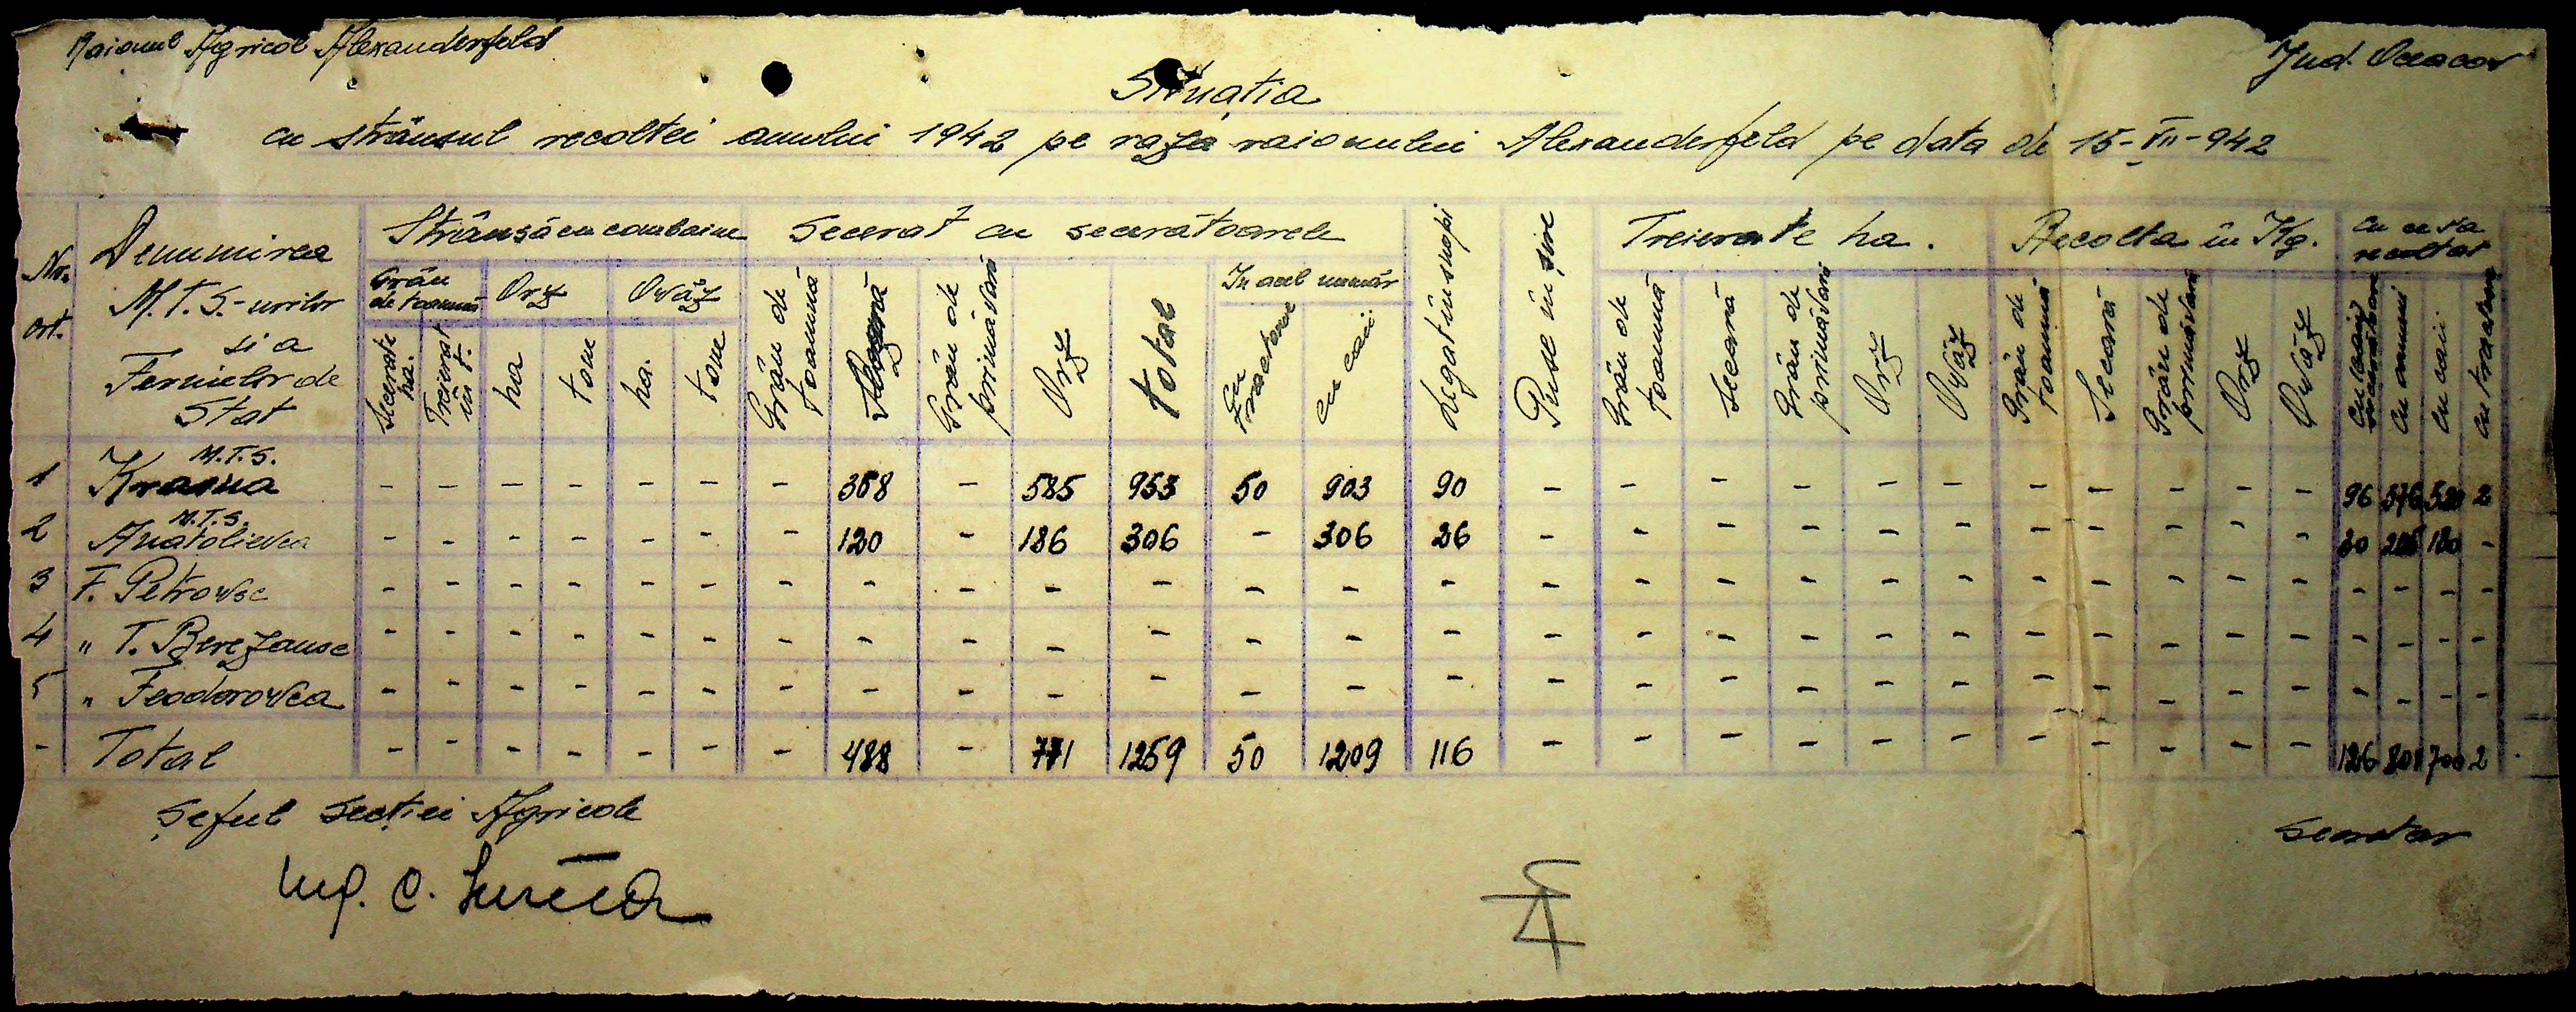 Raionul Agricol Alexanderfeld
Jud. Oceacov
Situația
cu strânsul recoltei anului 1942 pe raza raionului Alexanderfeld pe data de 15-VII-942
Nr. crt.
Denumirea M.T.S.-urilor și a Fermelor de Stat
Strânsă cu combaine
Secerat cu secerătoarele
Legat în snopi
Puse în șire
Treierate ha.
Recolta în Kg.
Cu ce s'a recoltat
Grâu de toamnă
Orz
Ovăz
In acel număr
Secerate ha.
Treierat în t.
ha
tone
ha.
tone
Grâu de toamnă
Secară
Grâu de primăvară
Orz
total
Cu tractoare
Cu caii
Grâu de toamnă
Secară
Grâu de primăvară
Orz
Ovăz
Grâu de toamnă
Secară
Grâu de primăvară
Orz
Ovăz
Cu oameni
Cu caii
Cu tractoare
1 M.T.S. Krasna - - - - - - - 368 - 585 953 50 903 90 - - - - - - - - - - - 96 376 520 2
2 M.T.S. Anatolievca - - - - - - - 120 - 186 306 - 306 26 - - - - - - - - - - - 30 180 -
3 F. Petrovsc - - - - - - - - - - - - - - - - - - - - - - - - - - - - -
4 " T. Berezansc - - - - - - - - - - - - - - - - - - - - - - - - - - - - -
5 " Feodorovca - - - - - - - - - - - - - - - - - - - - - - - - - - - - -
- Total - - - - - - - 488 - 771 1259 50 1209 116 - - - - - - - - - - - 126 801 700 2
Șeful Secției Agricole
Secretar
Ing. C.